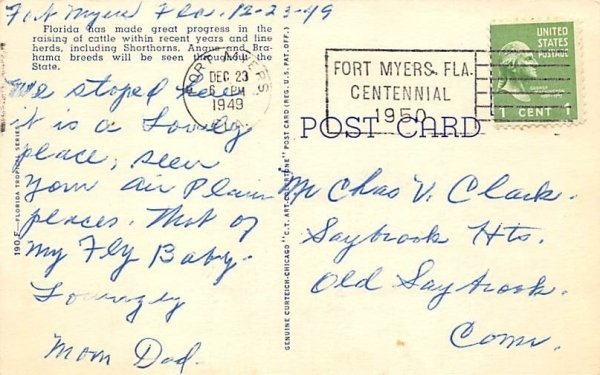 Fort Myers Fla. 12-23-49
Florida has made great progress in the
raising of cattle within recent years and fine
herds, including Shorthorns, Angus and Bra-
hama breeds will be seen throughout the
State.
We stoped here
it is a Lovely
place, seen
your Air Plain
places. That of
My Fly Baby.
Lovingly
Mom Dad.
190 F—FLORIDA TROPICAL SERIES
GENUINE CURTEICH-CHICAGO "C.T. ART-COLORTONE" POST CARD (REG. U.S. PAT. OFF.)
FORT MYERS
DEC 23
6 PM
1949
FLA.
FORT MYERS, FLA.
CENTENNIAL
1950
UNITED
STATES
POSTAGE
1 CENT 1
POST CARD
Mr Chas V. Clark.
Saybrook Hts.
Old Saybrook.
Conn.